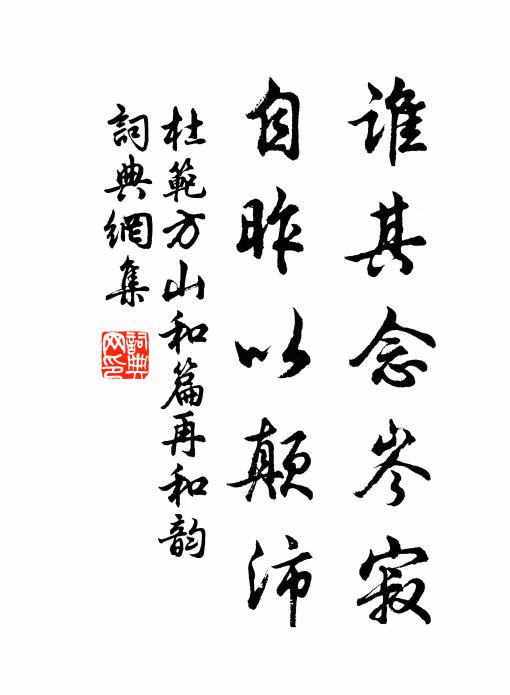 誰其念岑寂
自昨以顛沛
杜範方山和篇再和韵
詞典網集
詞典網印